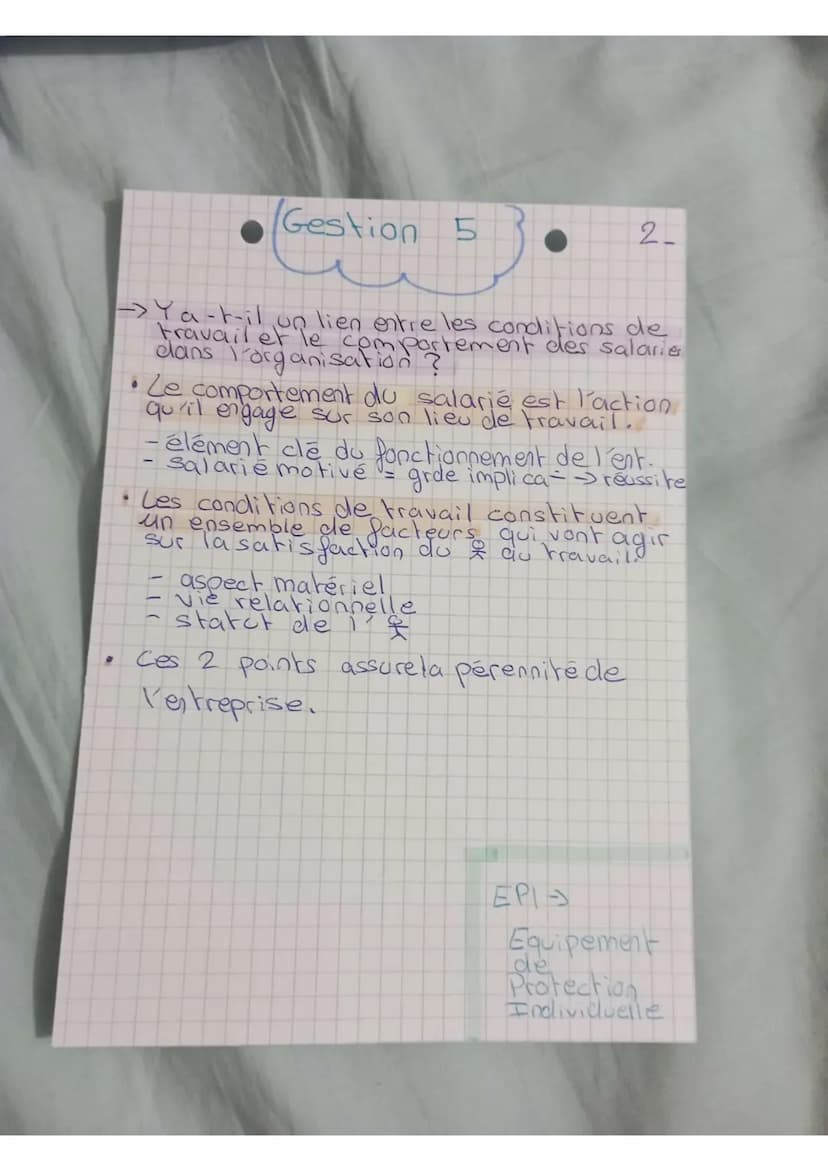 Gestion 5
2-
→ Y a-t-il un lien entre les conditions de
travail et le comportement des salariés
dans l'organisation ?
• Le comportement du salarié est l'action
qu'il engage sur son lieu de travail.
- élément clé du fonctionnement de l'ent.
- salarié motivé = grde implica÷ → réussite
• Les conditions de travail constituent
un ensemble de facteurs qui vont agir
sur la satisfaction du 웃 au travail.
- aspect matériel
- vie relationnelle
- statut de l'웃
• Ces 2 points assure la pérennité de
l'entreprise.
EPI →
Equipement
de
Protection
Individuelle